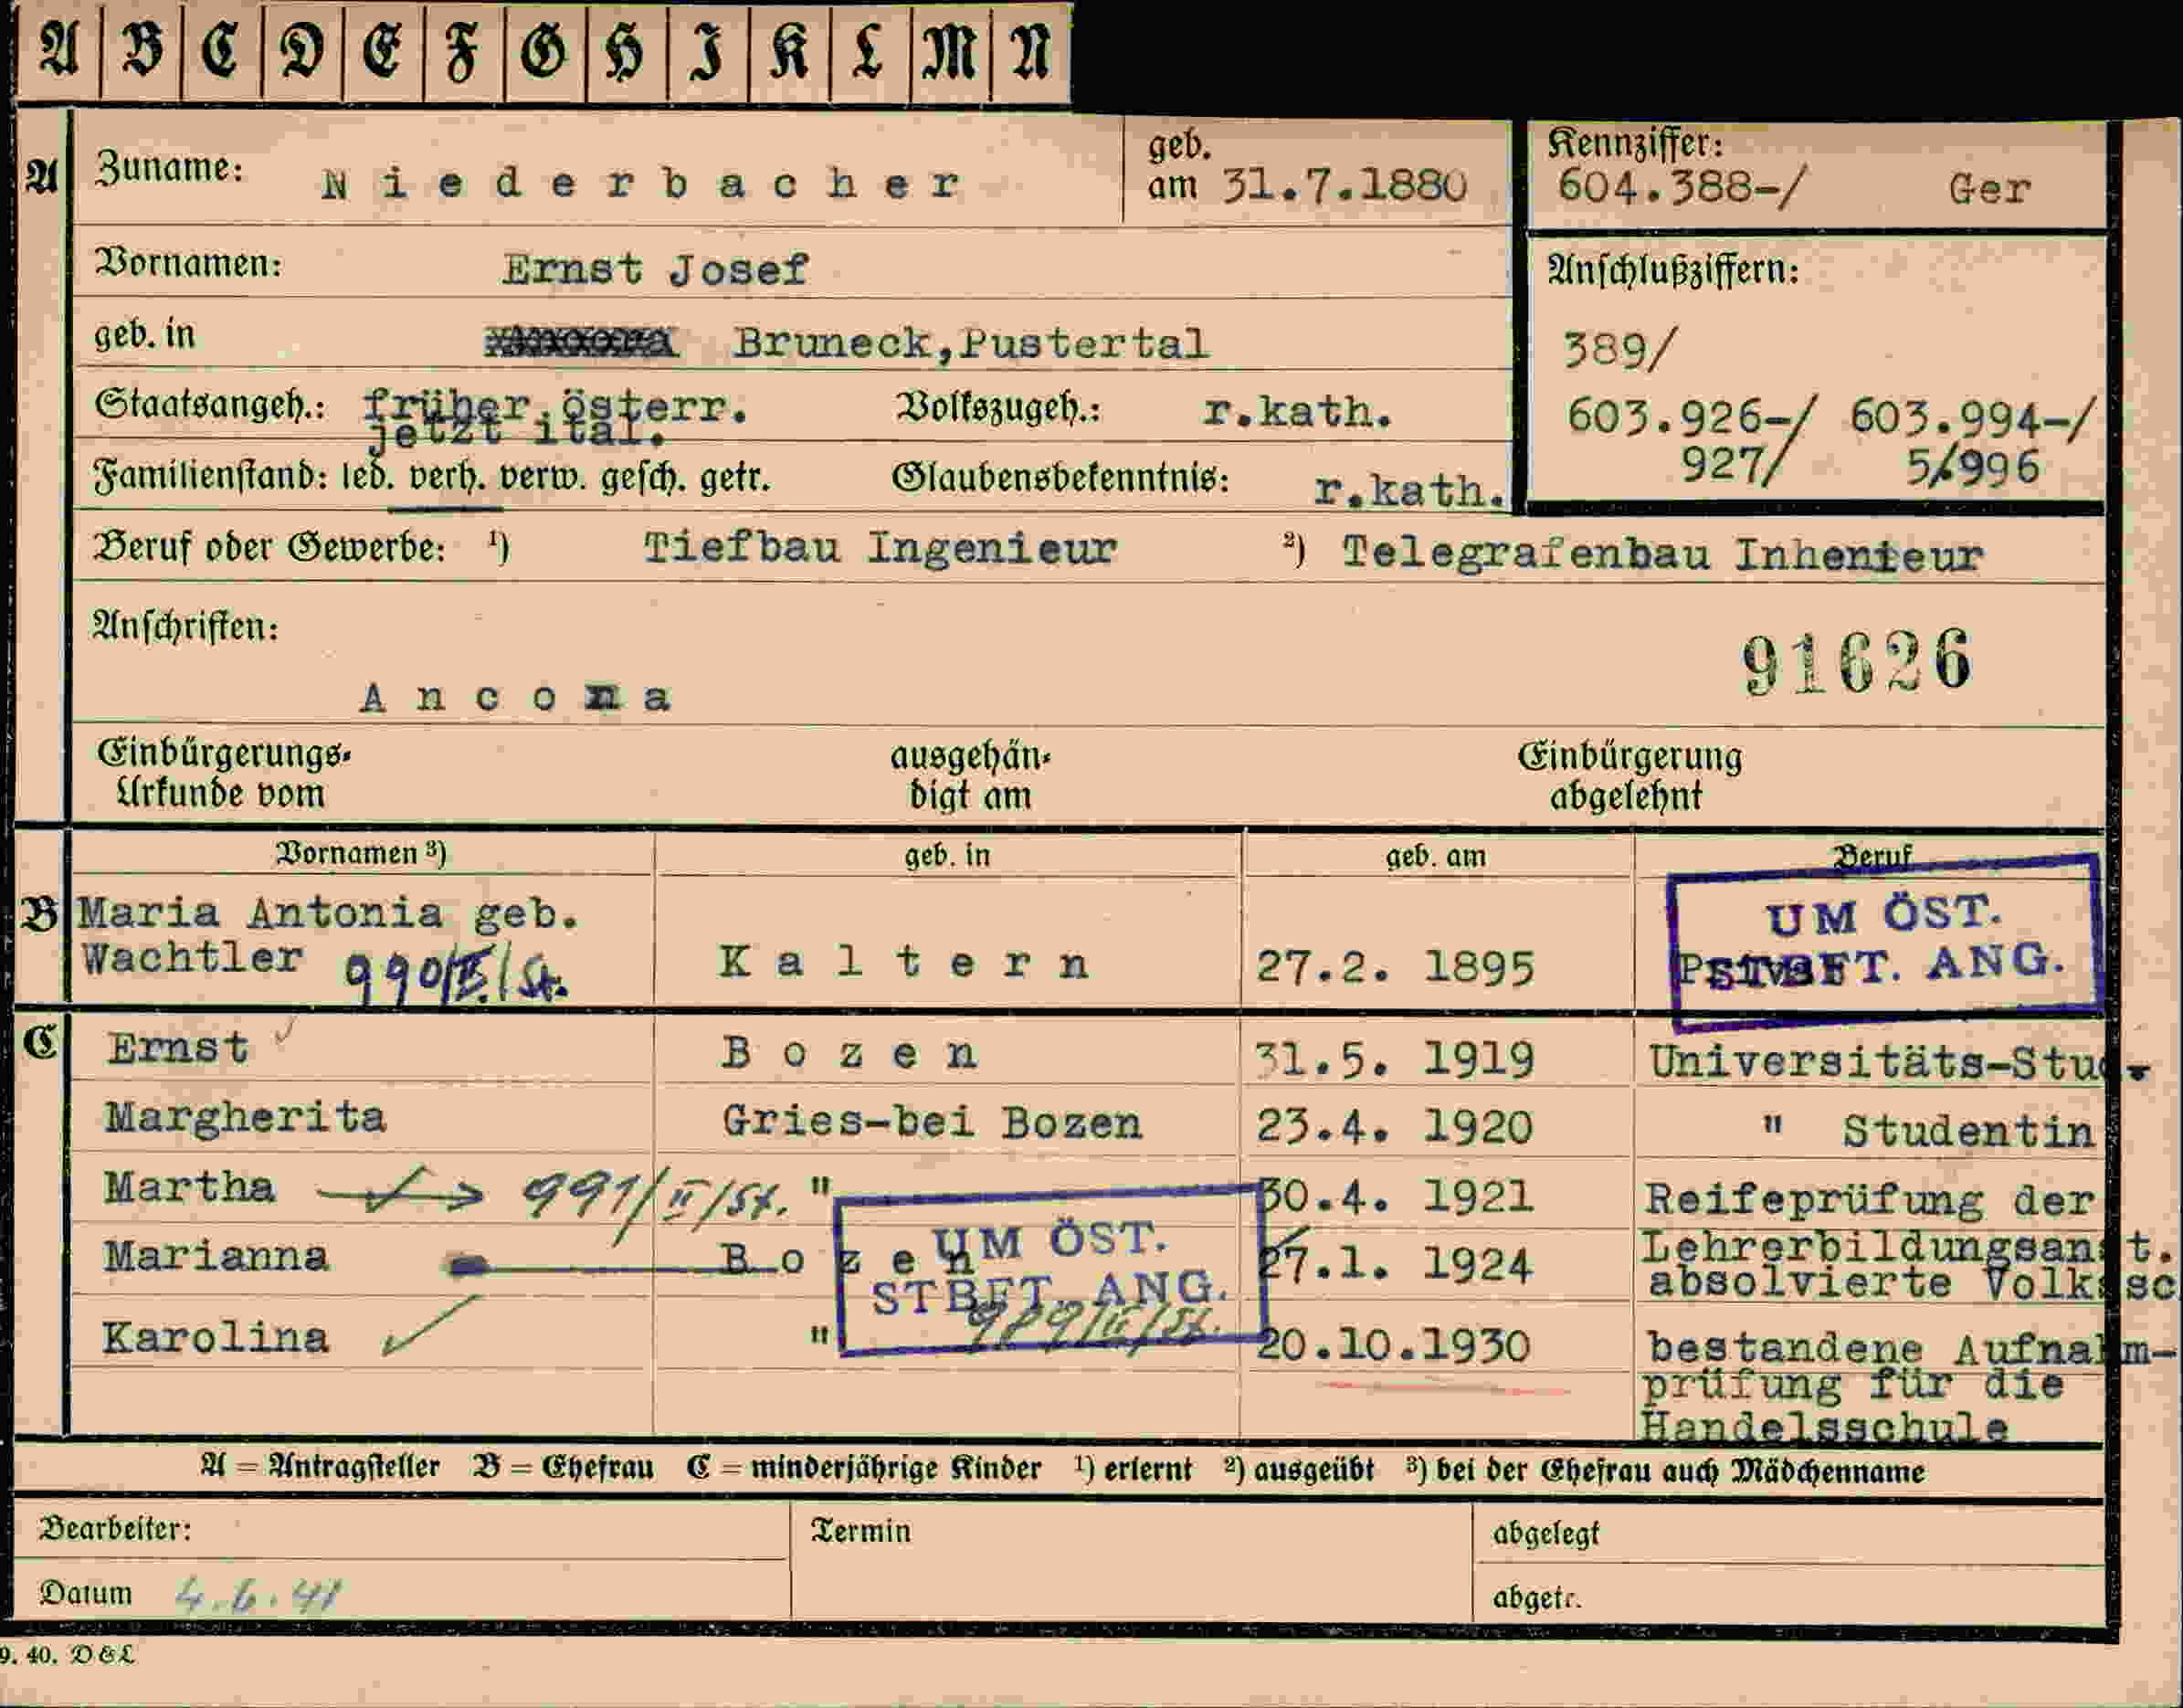 A B C D E F G H I K L M N
A Zuname: Niederbacher geb. am 31.7.1880
Kennziffer: 604.388-/ Ger
Vornamen: Ernst Josef
Anschlußziffern:
geb. in Bruneck,Pustertal
389/
Staatsangeh.: früher.österr. jetzt ital. Volkszugeh.: r.kath.
603.926-/ 603.994-/
927/ 5/996
Familienstand: led. verh. verw. gesch. getr. Glaubensbekenntnis: r.kath.
Beruf oder Gewerbe: ¹) Tiefbau Ingenieur ²) Telegrafenbau Inhenieur
Anschriften:
91626
Ancona
Einbürgerungs- ausgehän- Einbürgerung
Urkunde vom digt am abgelehnt
Vornamen ³) geb. in geb. am Beruf
B Maria Antonia geb.
Wachtler 990/II/St. Kaltern 27.2. 1895
UM ÖST.
STBFT. ANG.
C Ernst Bozen 31.5. 1919 Universitäts-Stud.
Margherita Gries-bei Bozen 23.4. 1920 " Studentin
Martha 991/II/St. " 30.4. 1921 Reifeprüfung der
Lehrerbildungsanst.
Marianna Bozen 27.1. 1924 absolvierte Volkssc
UM ÖST.
STBFT. ANG.
989/II/St.
Karolina " 20.10.1930 bestandene Aufnahm-
prüfung für die
Handelsschule
A = Antragsteller B = Ehefrau C = minderjährige Kinder ¹) erlernt ²) ausgeübt ³) bei der Ehefrau auch Mädchenname
Bearbeiter: Termin abgelegt
Datum 4.6.41 abgetr.
9. 40. D & L